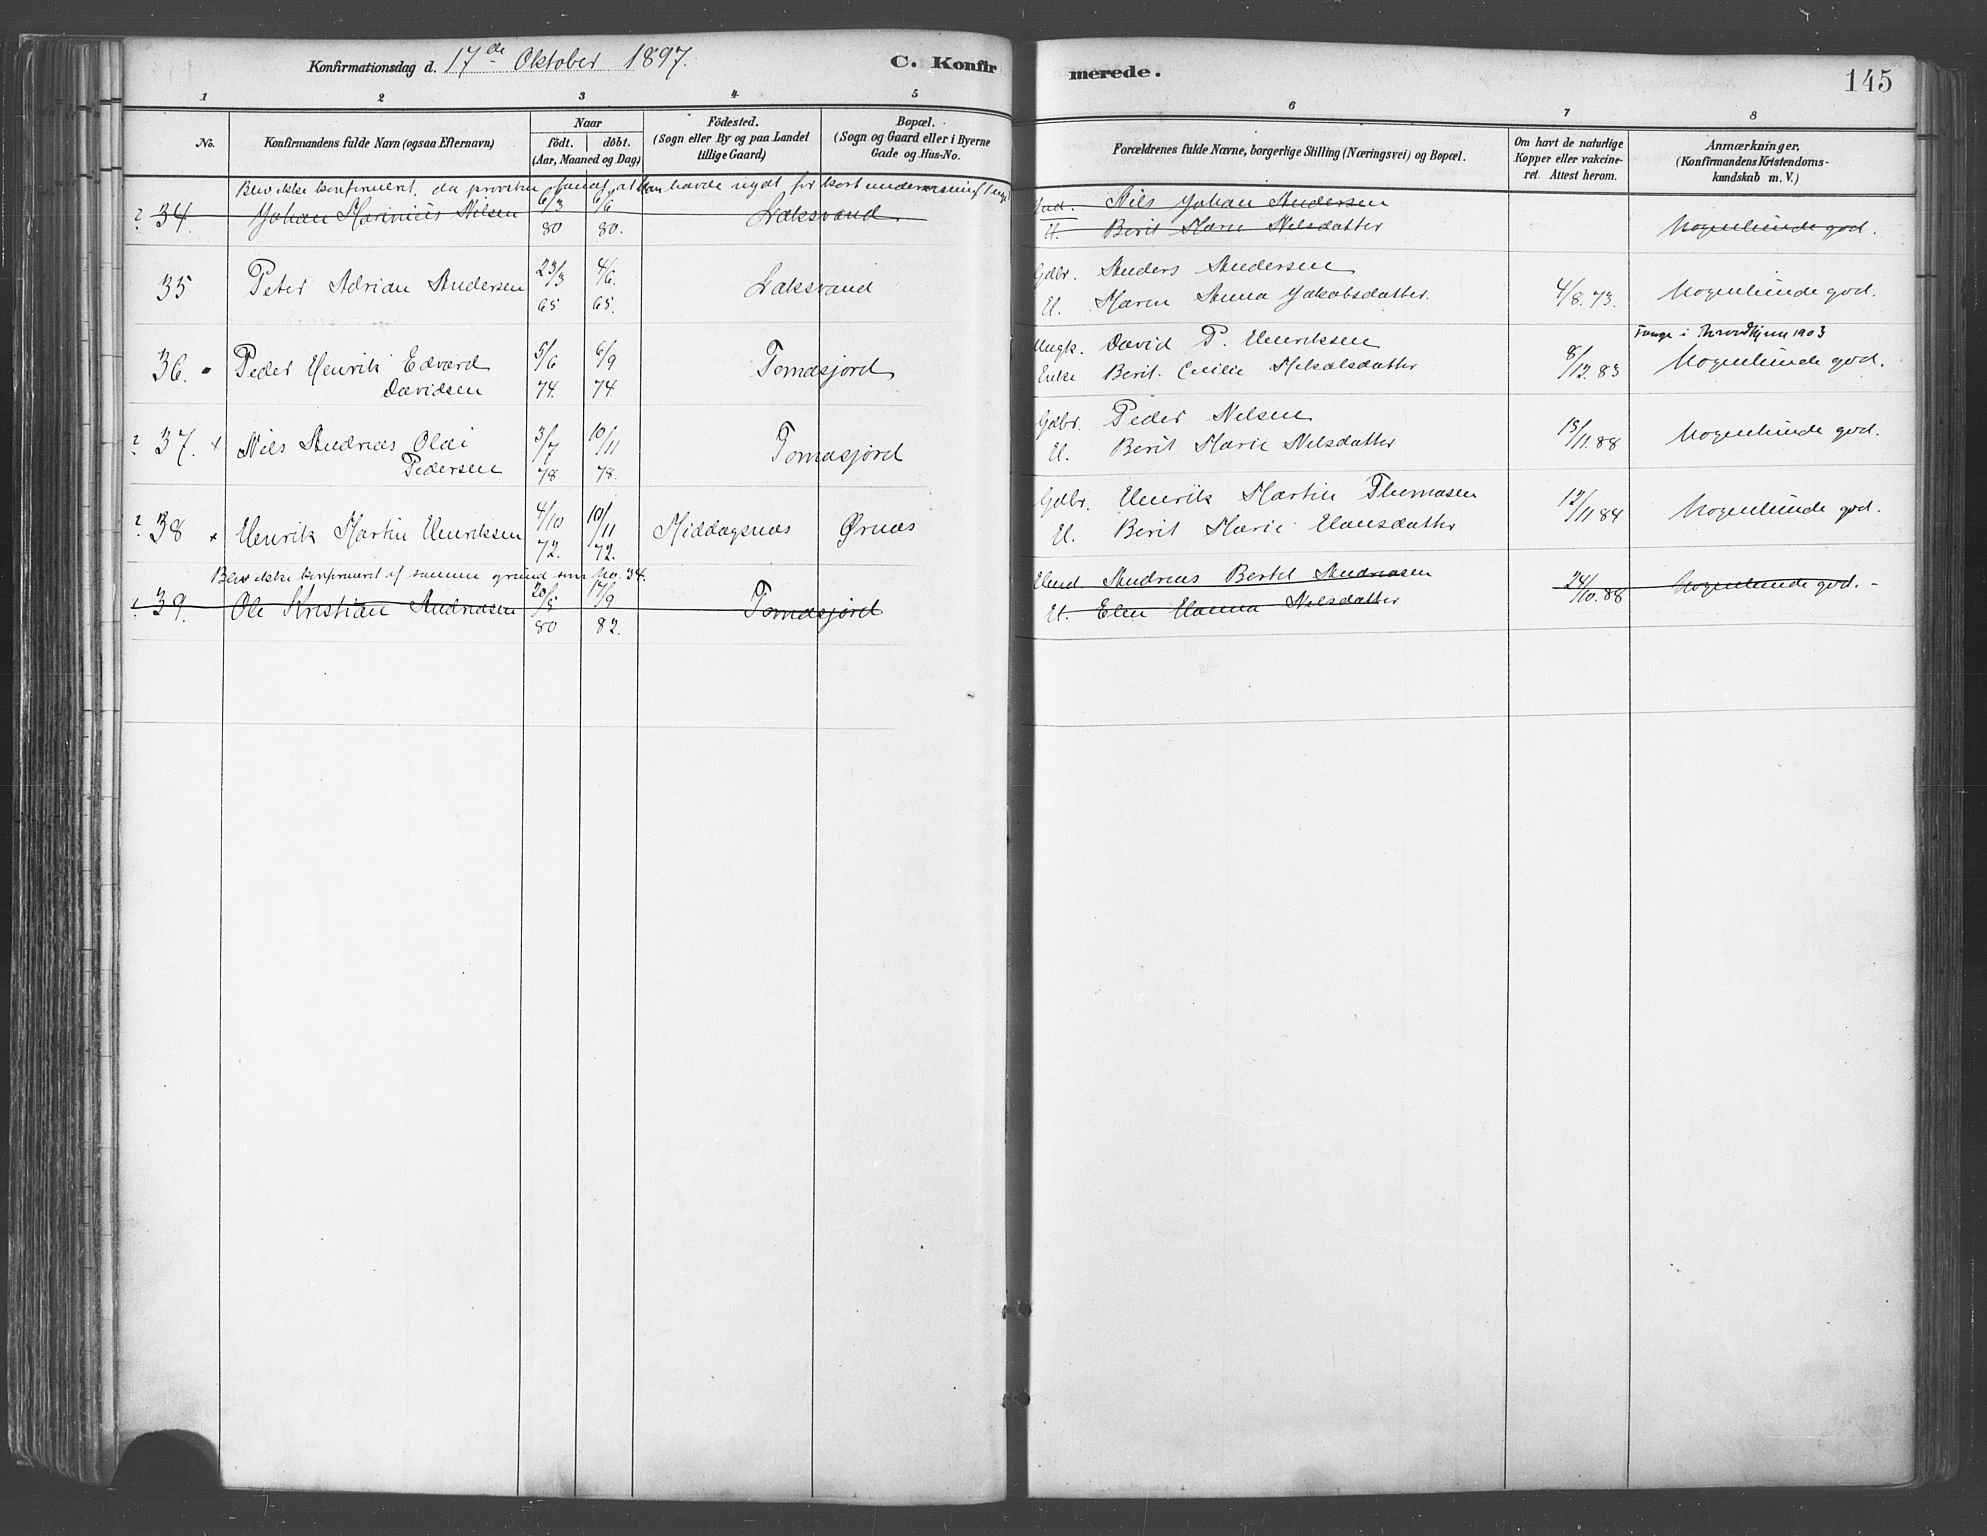 Konfirmationsdag d. 17de Oktober 1897.
C. Konfir
merede.
145
1 2 3 4 5 6 7 8
No.
Konfirmandens fulde Navn (ogsaa Efternavn)
Naar
födt. döbt.
(Aar, Maaned og Dag)
Födested.
(Sogn eller By og paa Landet
tillige Gaard)
Bopæl.
(Sogn og Gaard eller i Byerne
Gade og Hus-No.
Forældrenes fulde Navne, borgerlige Stilling (Næringsvei) og Bopæl.
Om havt de naturlige
Kopper eller vakcine-
ret. Attest herom.
Anmærkninger,
(Konfirmandens Kristendoms-
kundskab m. V.)
Blev ikke konfirmeret, da provsten fandt at han havde nydt for kort undervisning
? 34. Johan Marinius Nilsen 6/3 80 6/6 80. Laksvand.
Ind. Nils Johan Andersen
H. Berit Marie Nilsdatter
Nogenlunde god.
35 Peter Adrian Andersen 23/3 65 4/6. 65. Laksvand
Gdbr. Anders Andersen
H. Maren Anna Jakobsdatter. 4/8. 73. Nogenlunde god.
36. Peder Henrik Edvard
Davidsen 5/6 74. 6/9 74. Tomasjord
Ungk. David P. Henriksen
Enke Berit Cecilie Mikalsdatter 8/12. 83
Fange i Trondhjem 1903
Nogenlunde god.
? 37. x Nils Andreas Olai
Pedersen 3/7 78 10/11 78. Tomasjord
Gdbr. Peder Nilsen
H. Berit Marie Nilsdatter 13/11. 88 Nogenlunde god.
? 38 x Henrik Martin Henriksen 4/10 72. 10/11 72. Middagsnæs Ørnæs
Gdbr. Henrik Martin Thomasen
H. Berit Marie Hansdatter 12/11. 84 Nogenlunde god.
Blev ikke konfirmeret af samme grund som No. 34.
? 39. Ole Kristian Andreasen 20/5 80 17/9 82. Tomasjord
Andreas Bertel Andreasen
H. Elen Hanna Nilsdatter 24/10. 88 Nogenlunde god. -